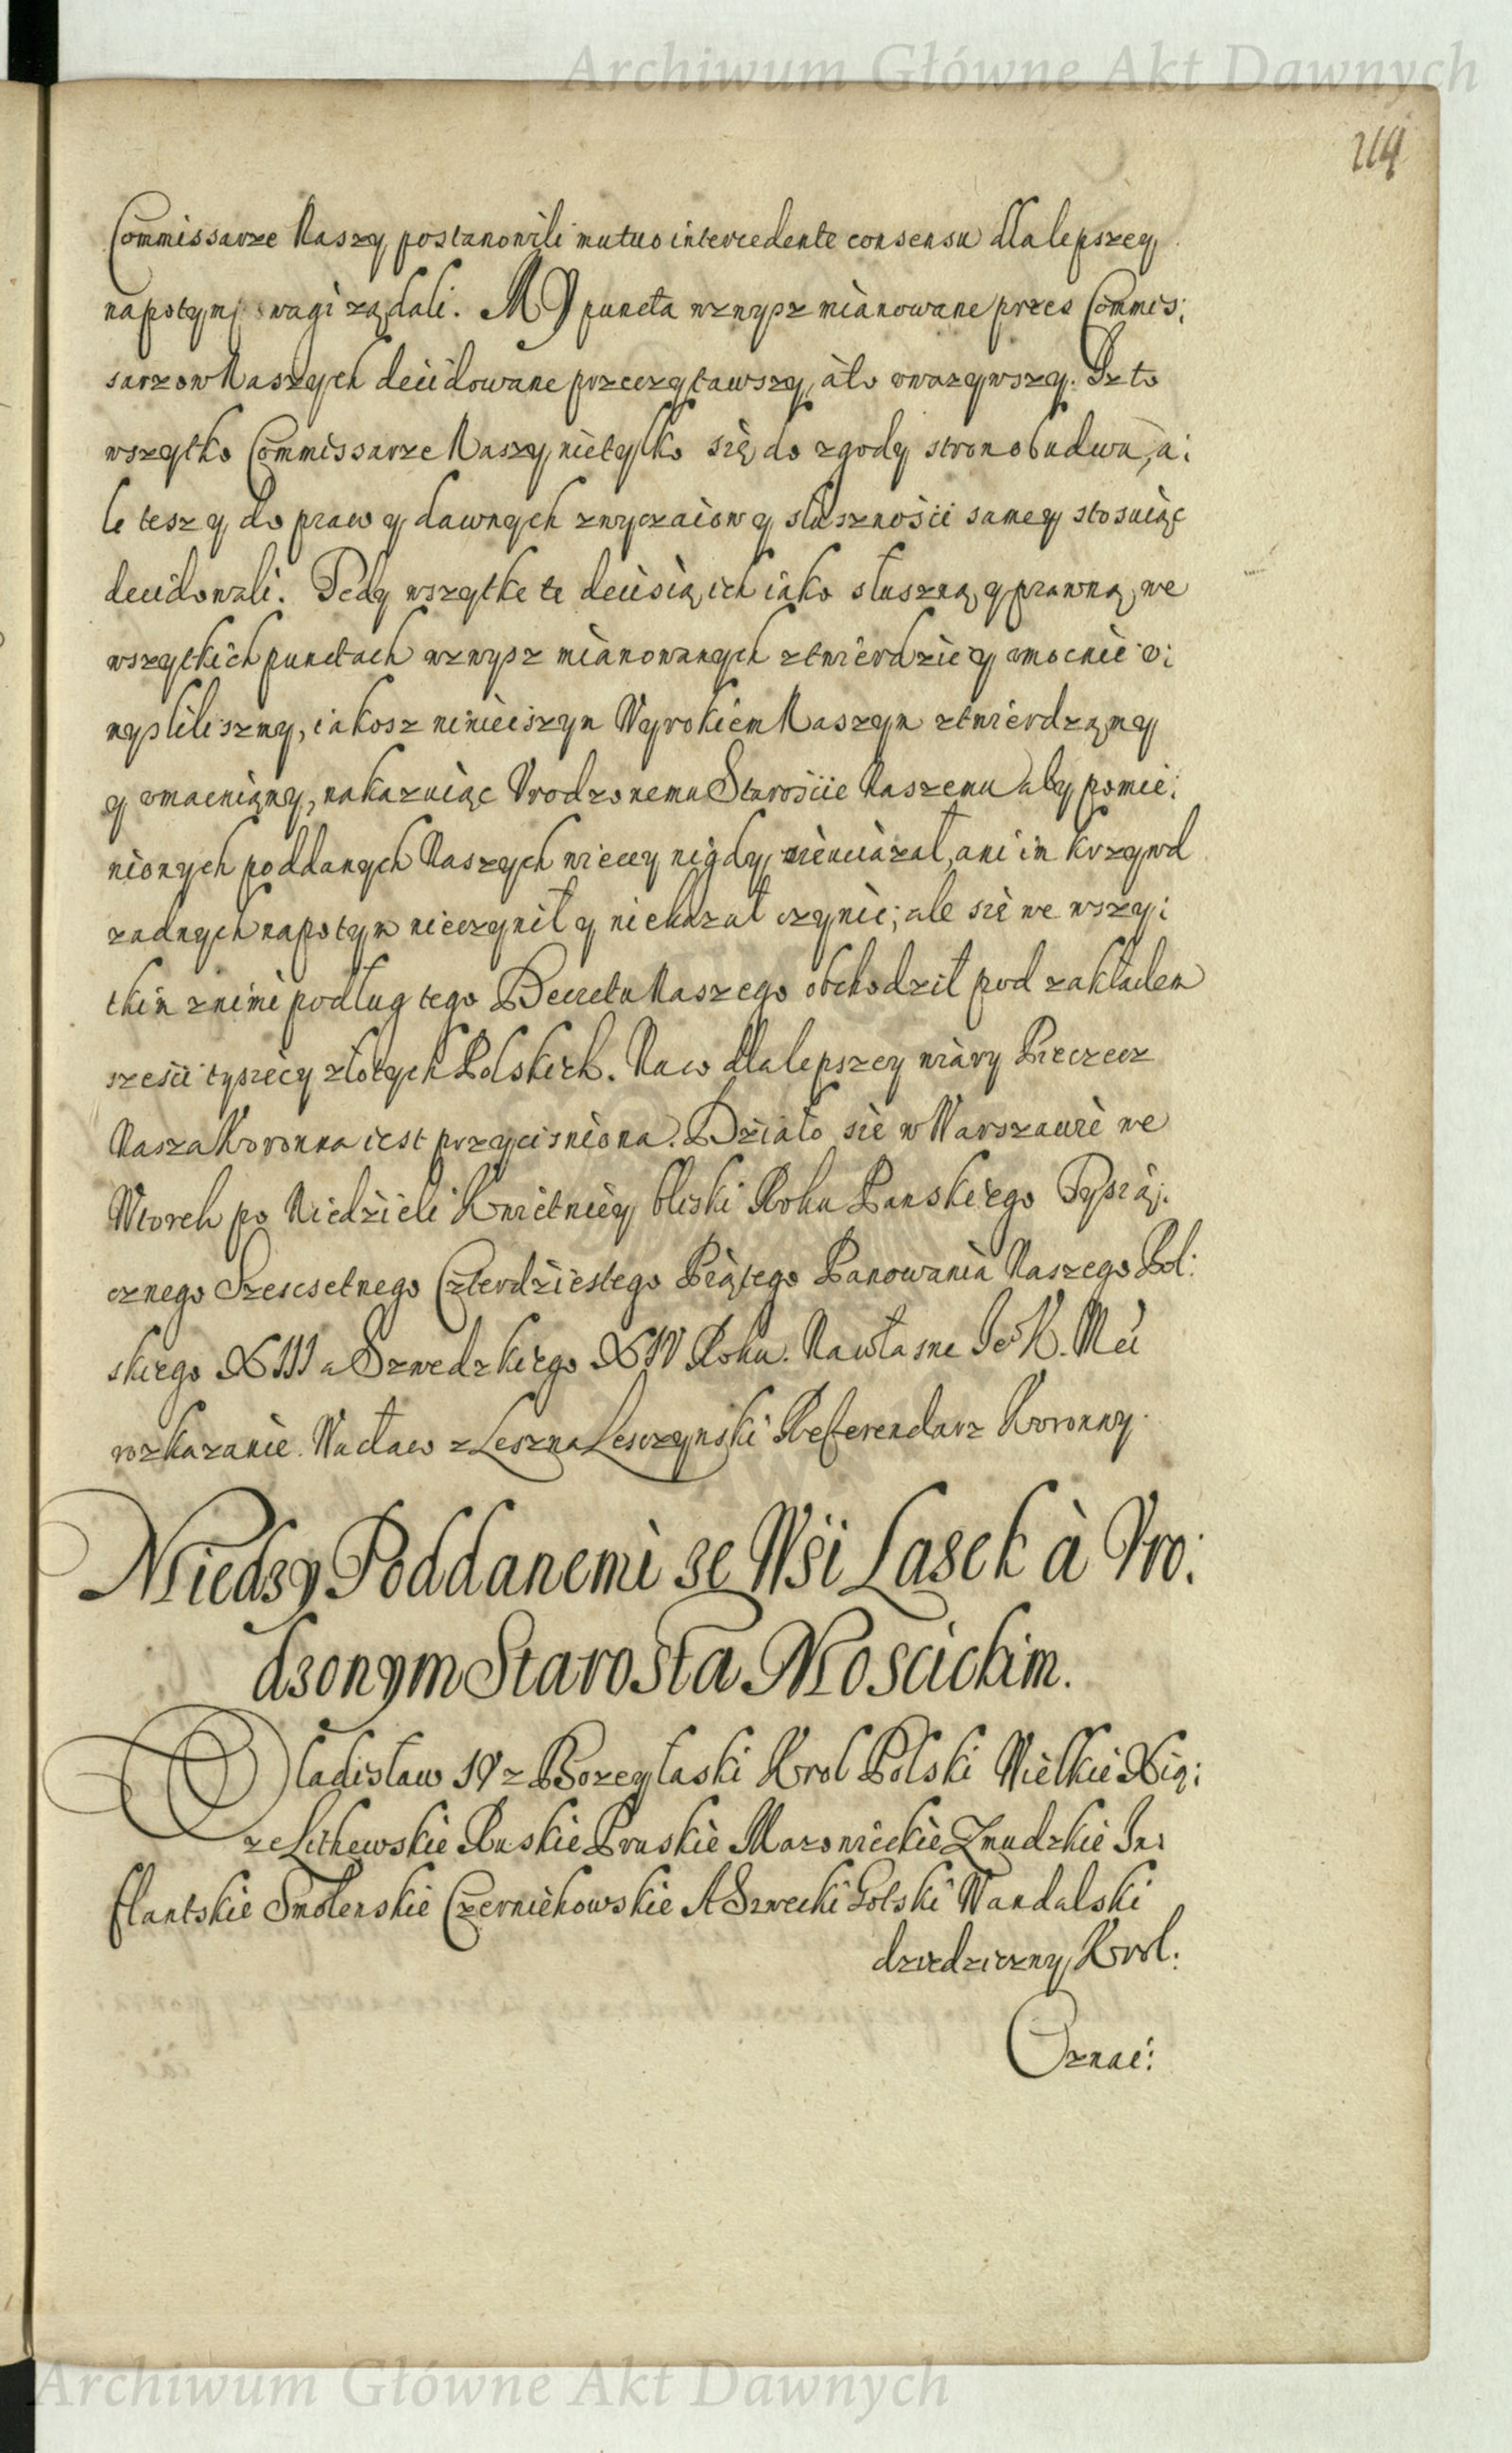 Archiwum Główne Akt Dawnych
214
Commissarze Naszy postanowili mutuo intercedente consensu dla lepszey
napotym wagi żądali. MY puncta wzwysz mianowane przes Commis:
sarzow Naszych decidowane przeczytawszy, a to uwazywszy. Isz to
wszytko Commissarze Naszy nie tylko się do zgody stron obudwu, a:
le tesz y do praw y dawnych zwyczaiow y słusznosci samey stosuiąc
decidowali. Tedy wszytke te decisią ich iako słuszną y prawną we
wszytkich punctach wzwysz mianowanych ztwierdzic y umocnic u:
myslilismy, iakosz ninieiszym Wyrokiem Naszym ztwierdzamy
y umacniamy, nakazuiąc Urodzonemu Staroscie Naszemu aby pomie:
nionych poddanych Naszych wiecey nigdy nieuciązał, ani im krzywd
zadnych napotym nieczynił y niekazał czynic; ale sie we wszy:
tkim znimi podług tego Decretu Naszego obchodził pod zakładem
szesci tysiecy złotych Polskich. Na co dla lepszey wiary Pieczecz
Nasza Koronna iest przycisniona. Działo sie w Warszawie we
Wtorek po Niedzieli Kwietniey bliski Roku Panskiego Tysią:
cznego Szescsetnego Czterdziestego Piątego Panowania Naszego Pol:
skiego XIII a Szwedzkiego XIV Roku. Na własne Je° K. Mci
rozkazanie. Wacław z Leszna Lesczynski Referendarz Koronny.
Miedsy Poddanemi se Wsi Lasek à Uro:
dsonym Starosta Moscickim.
Vladisław IV z Bozey łaski Krol Polski Wielkie Xią:
ze Lithewskie Ruskie Pruskie Mazowieckie Zmudzkie In:
flantskie Smolenskie Czerniehowskie A Szwecki Gotski Wandalski
dziedziczny Krol.
Oznaé:
Archiwum Główne Akt Dawnych